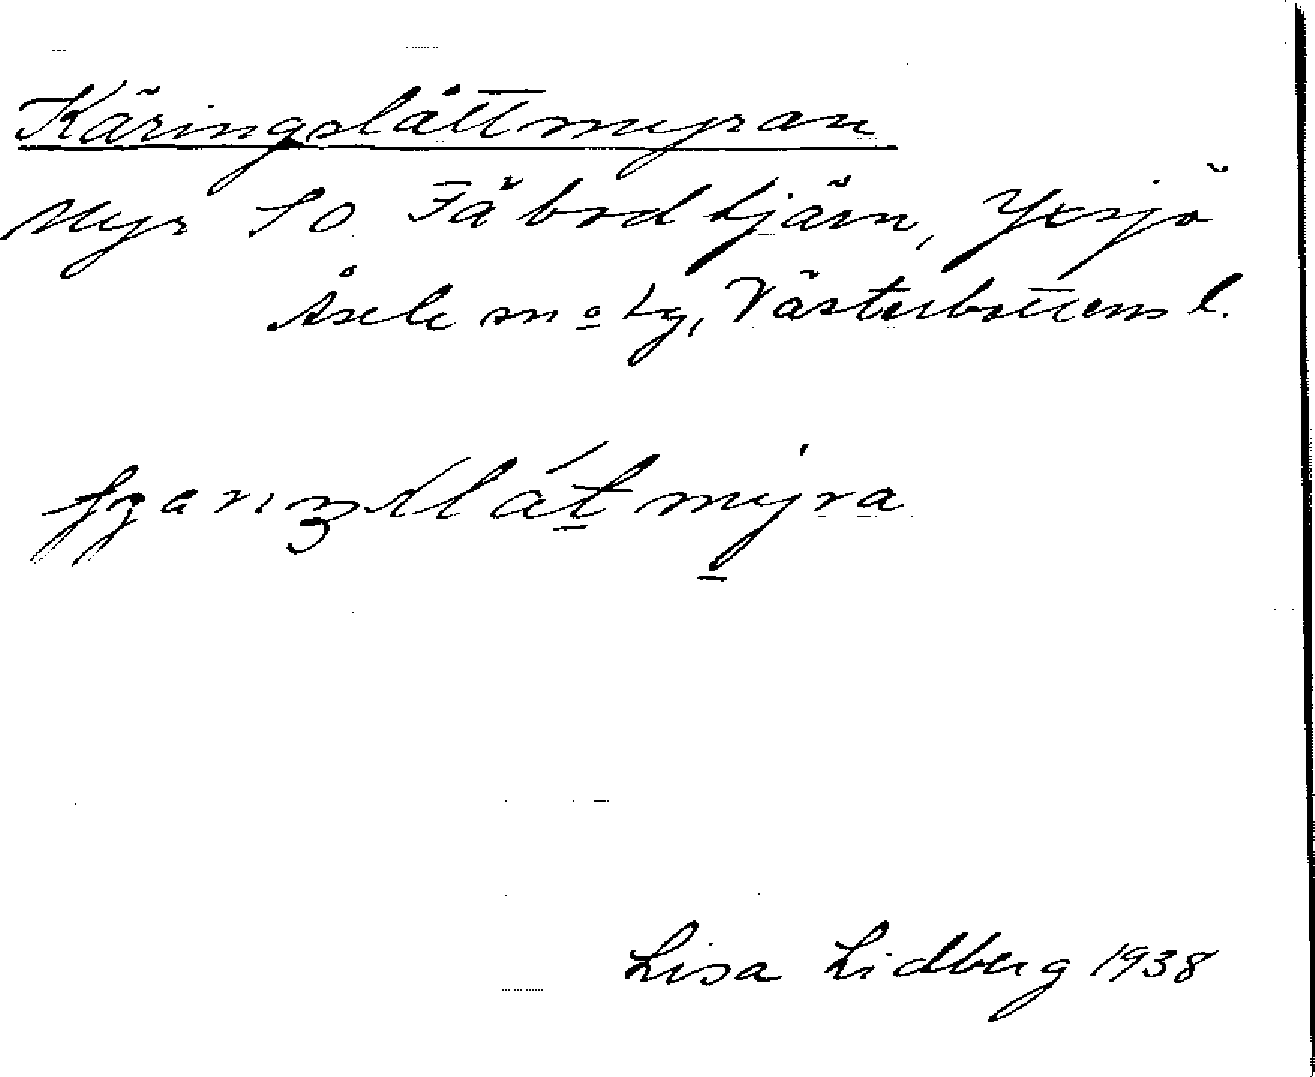 Käringslåttmyran
Myr SO Fäbodtjärn, Yxsjö
Åsele sn o lg, Västerbottens l.
Lisa Lidberg 1938